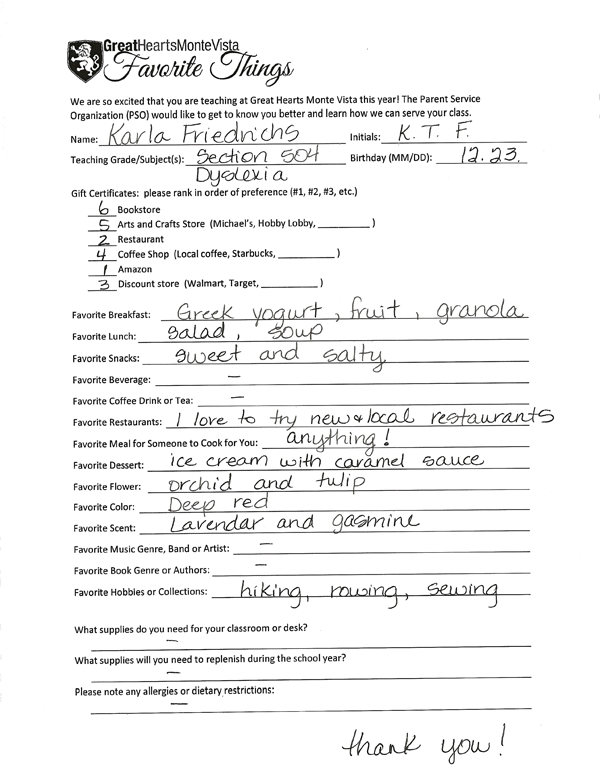 GreatHeartsMonteVista
Favorite Things
We are so excited that you are teaching at Great Hearts Monte Vista this year! The Parent Service
Organization (PSO) would like to get to know you better and learn how we can serve your class.
Name: Karla Friedrichs Initials: K. T. F.
Teaching Grade/Subject(s): Section 504 Birthday (MM/DD): 12.23.
Dyslexia
Gift Certificates: please rank in order of preference (#1, #2, #3, etc.)
6 Bookstore
5 Arts and Crafts Store (Michael's, Hobby Lobby, ________ )
2 Restaurant
4 Coffee Shop (Local coffee, Starbucks, ________ )
1 Amazon
3 Discount store (Walmart, Target, ________ )
Favorite Breakfast: Greek yogurt, fruit, granola
Favorite Lunch: Salad, soup
Favorite Snacks: Sweet and salty
Favorite Beverage: —
Favorite Coffee Drink or Tea: —
Favorite Restaurants: I love to try new & local restaurants
Favorite Meal for Someone to Cook for You: anything!
Favorite Dessert: ice cream with caramel sauce
Favorite Flower: orchid and tulip
Favorite Color: Deep red
Favorite Scent: Lavendar and gasmine
Favorite Music Genre, Band or Artist: —
Favorite Book Genre or Authors: —
Favorite Hobbies or Collections: hiking, rowing, sewing
What supplies do you need for your classroom or desk?
—
What supplies will you need to replenish during the school year?
—
Please note any allergies or dietary restrictions:
—
thank you!